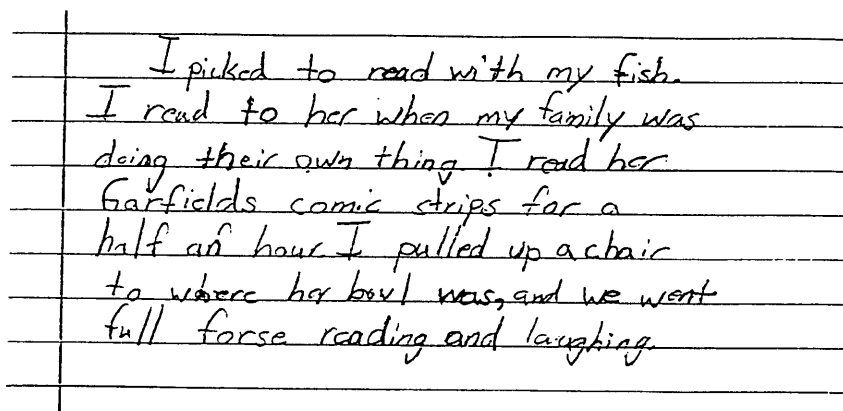 I picked to read with my fish.
I read to her when my family was
doing their own thing. I read her
Garfields comic strips for a
half an hour. I pulled up a chair
to where her bowl was, and we went
full forse reading and laughing.